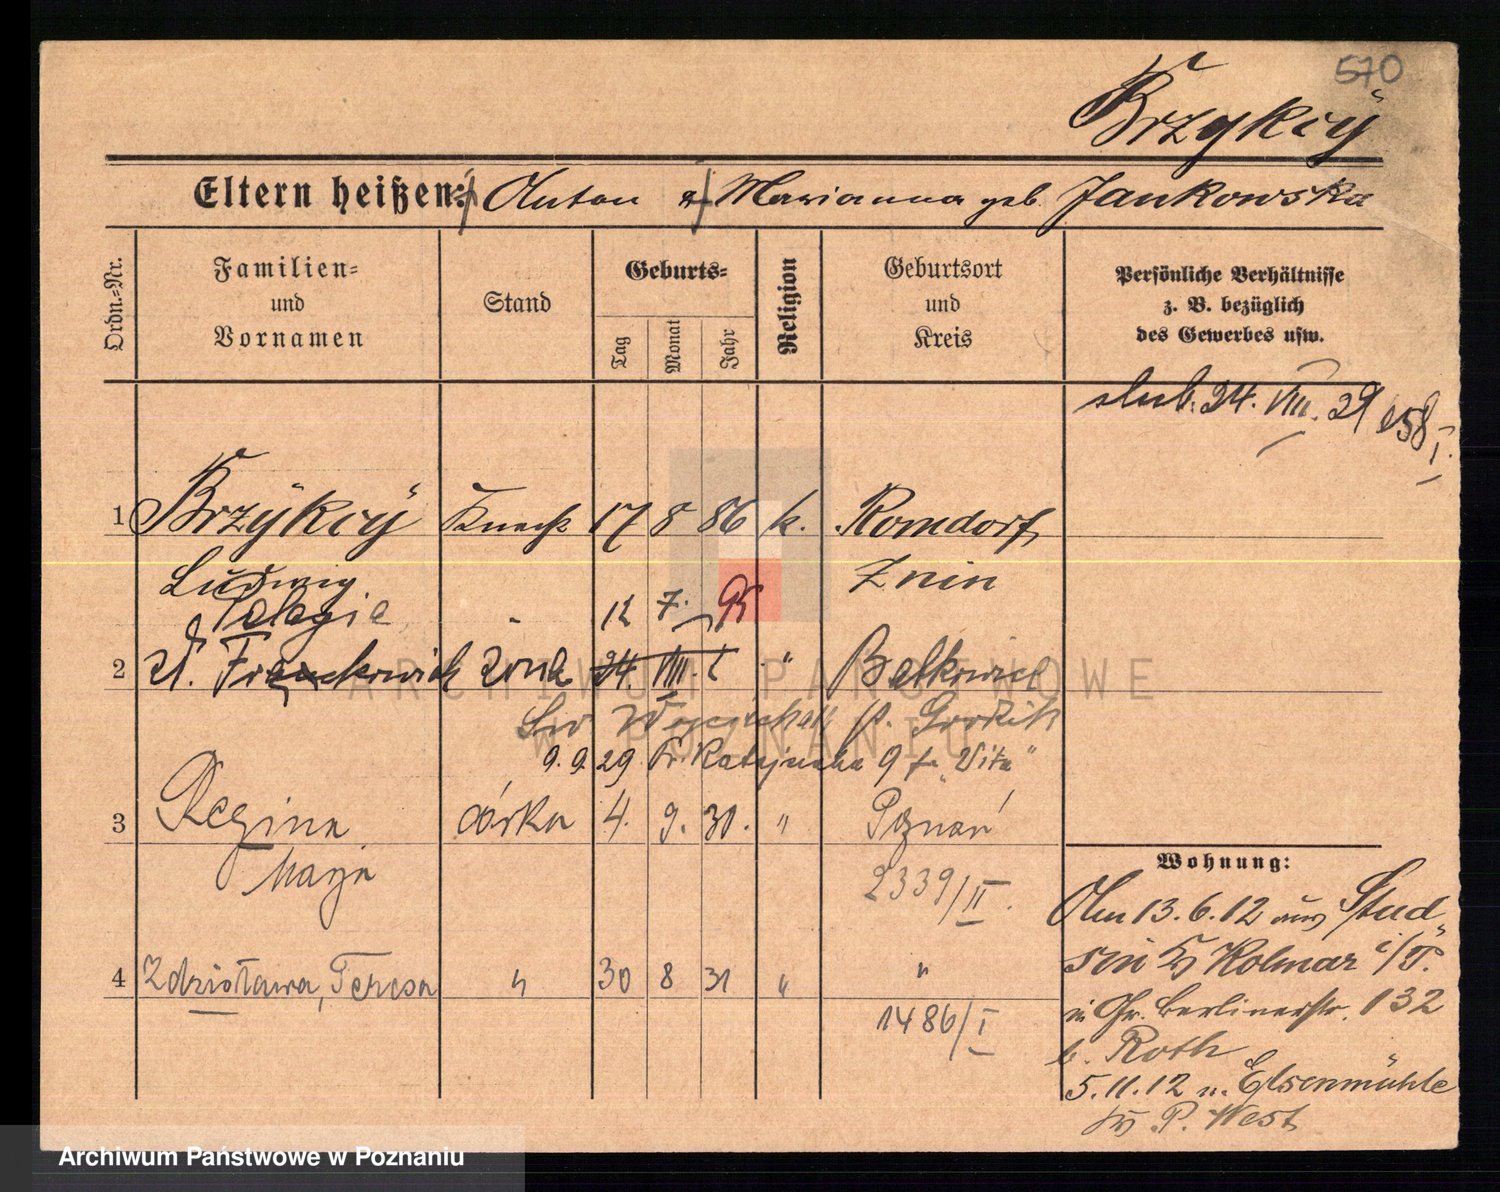 570
Brzykcÿ
Eltern heißen: Anton & Marianna geb. Jankowska
Ordn.-Nr.
Familien- und Vornamen
Stand
Geburts-
Tag
Monat
Jahr
Religion
Geburtsort und Kreis
Persönliche Verhältnisse z. B. bezüglich des Gewerbes usw.
ślub. 24. VIII. 29 158/I.
1 Brzÿkcÿ Knecht 17 8 86 k. Romdorf
Ludwig Znin
Pelagie 12 7. 95
2 d. Franckowiak żona 24 VIII " 
9. 9. 29 9 "Vita"
3 Regina córka 4. 9. 30. " Poznań
Marja 2339/II.
4 Zdzisława, Teresa " 30 8 31 " "
1486/I
Wohnung:
Am 13.6.12 aus Stud
sin Kr Kolmar i/P.
in Gr. Berlinerstr. 132
b. Roth
5.11.12 n. Elsenmühle
Kr. P. West
ARCHIWUM PAŃSTWOWE
W POZNANIU
Archiwum Państwowe w Poznaniu